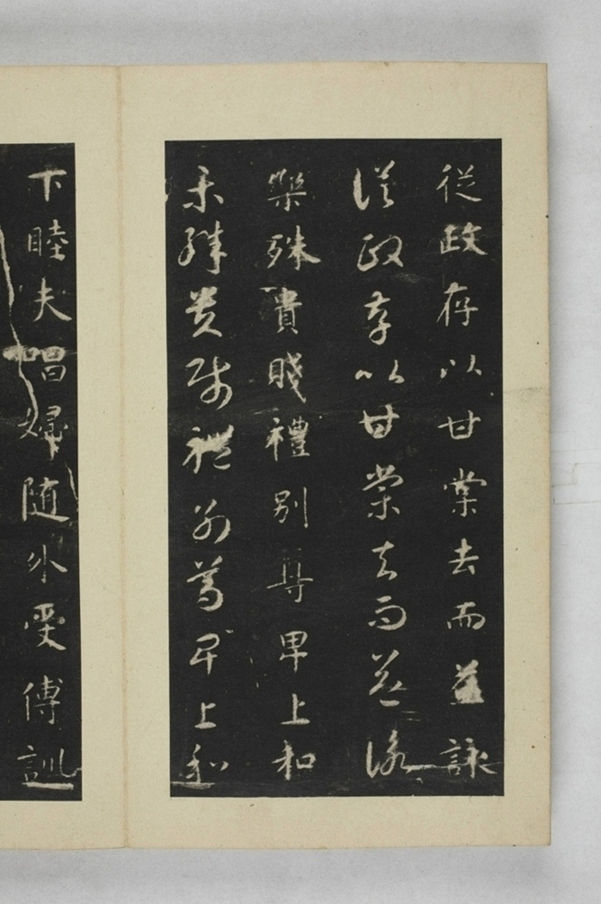 從政存以甘棠去而益詠
從政存以甘棠去而益詠
樂殊貴賤禮別尊卑上和
樂殊貴賤禮別尊卑上和
下睦夫唱婦随外受傅訓